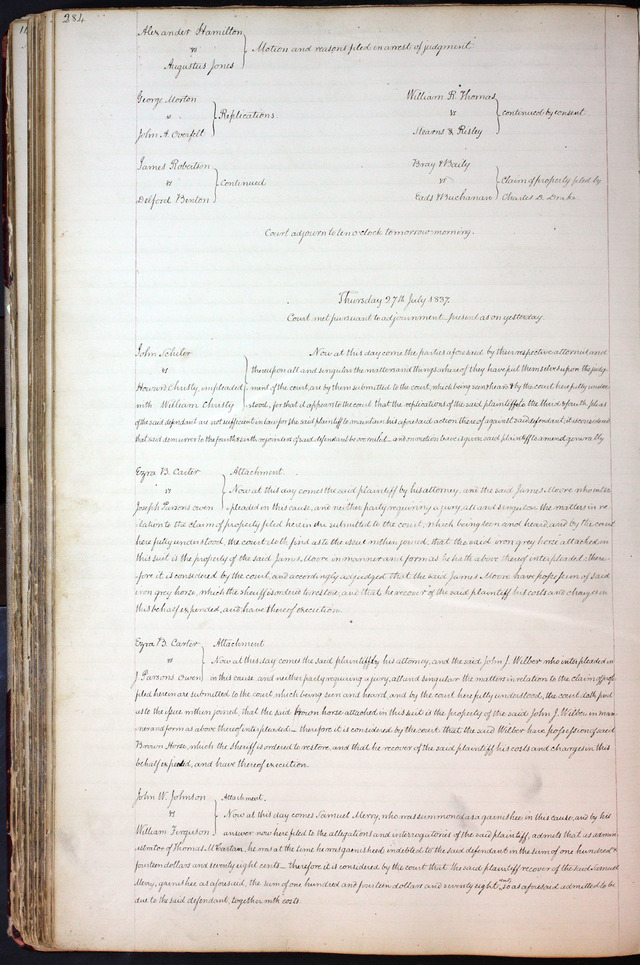 284
Alexander Hamilton
vs } Motion and reasons filed in arrest of judgment
Augustus Jones
George Morton
vs } Replications.
John A. Overfelt
William R. Thomas
vs } continued by consent.
Stearns & Risley
James Robertson
vs } continued
Delford Benton
Bray & Baily
vs } Claim of property filed by
Eads & Buchanan Charles D. Drake
Court adjourn to ten o'clock tomorrow morning.
Thursday 27th July 1837.
Court met pursuant to adjournment present as on yesterday.
John Schuler Now at this day come the parties aforesaid by their respective attornies and
vs thereupon all and singular the matters and things whereof they have put themselves upon the judg-
Howard Christy, impleaded ment of the court, are by them submitted to the court, which being seen heard & by the court here fully under-
with William Christy stood, for that it appears to the court that the replications of the said plaintiff to the third & fourth pleas
of the said defendant are not sufficient in law for the said plaintiff to maintain his aforesaid action thereof against said defendant, it is considered
that said demurrer to the fourth rejoinders of said defendant be overruled and on motion leave is given said plaintiff to amend generally
Ezra B. Carter Attachment.
vs Now at this day comes the said plaintiff by his attorney, and the said James Moore who inter-
Joseph Parsons owen pleaded in this cause, and neither party requiring a jury, all and singular the matters in re-
lation to the claim of property filed herein are submitted to the court, which being seen and heard, and by the court
here fully understood, the court doth find as to the issue within joined, that the said iron grey horse attached in
this suit is the property of the said James Moore in manner and form as he hath above thereof interpleaded, there-
fore it is considered by the court, and accordingly adjudged that the said James Moore have possession of said
iron grey horse, which the sheriff is ordered to restore, and that he recover of the said plaintiff his costs and charges in
this behalf expended, and have thereof execution.
Ezra B. Carter Attachment
vs Now at this day comes the said plaintiff by his attorney, and the said John J. Wilber who interpleaded in
J Parsons Owen in this cause and neither party requiring a jury, all and singular the matters in relation to the claim of prop
filed herein are submitted to the court which being seen and heard, and by the court here fully understood, the court doth find
as to the issue within joined, that the said brown horse attached in this suit is the property of the said John J. Wilber in man-
ner and form as above thereof interpleaded therefore it is considered by the court that the said Wilber have possession of said
Brown Horse, which the Sheriff is ordered to restore, and that he recover of the said plaintiff his costs and charges in this
behalf expended, and have thereof execution.
John W. Johnson Attachment.
vs Now at this day comes Samuel Merry, who was summoned as a garnishee in this cause, and by his
William Ferguson answer now here filed to the allegations and interrogatories of the said plaintiff, admits that as admin-
istrator of Thomas McCartan, he was at the time he was garnisheed indebted to the said defendant in the sum of one hundred &
fourteen dollars and seventy eight cents therefore it is considered by the court that the said plaintiff recover of the said Samuel
Merry, garnishee as aforesaid, the sum of one hundred and fourteen dollars and seventy eight cents, so as aforesaid admitted to be
due to the said defendant, together with costs.